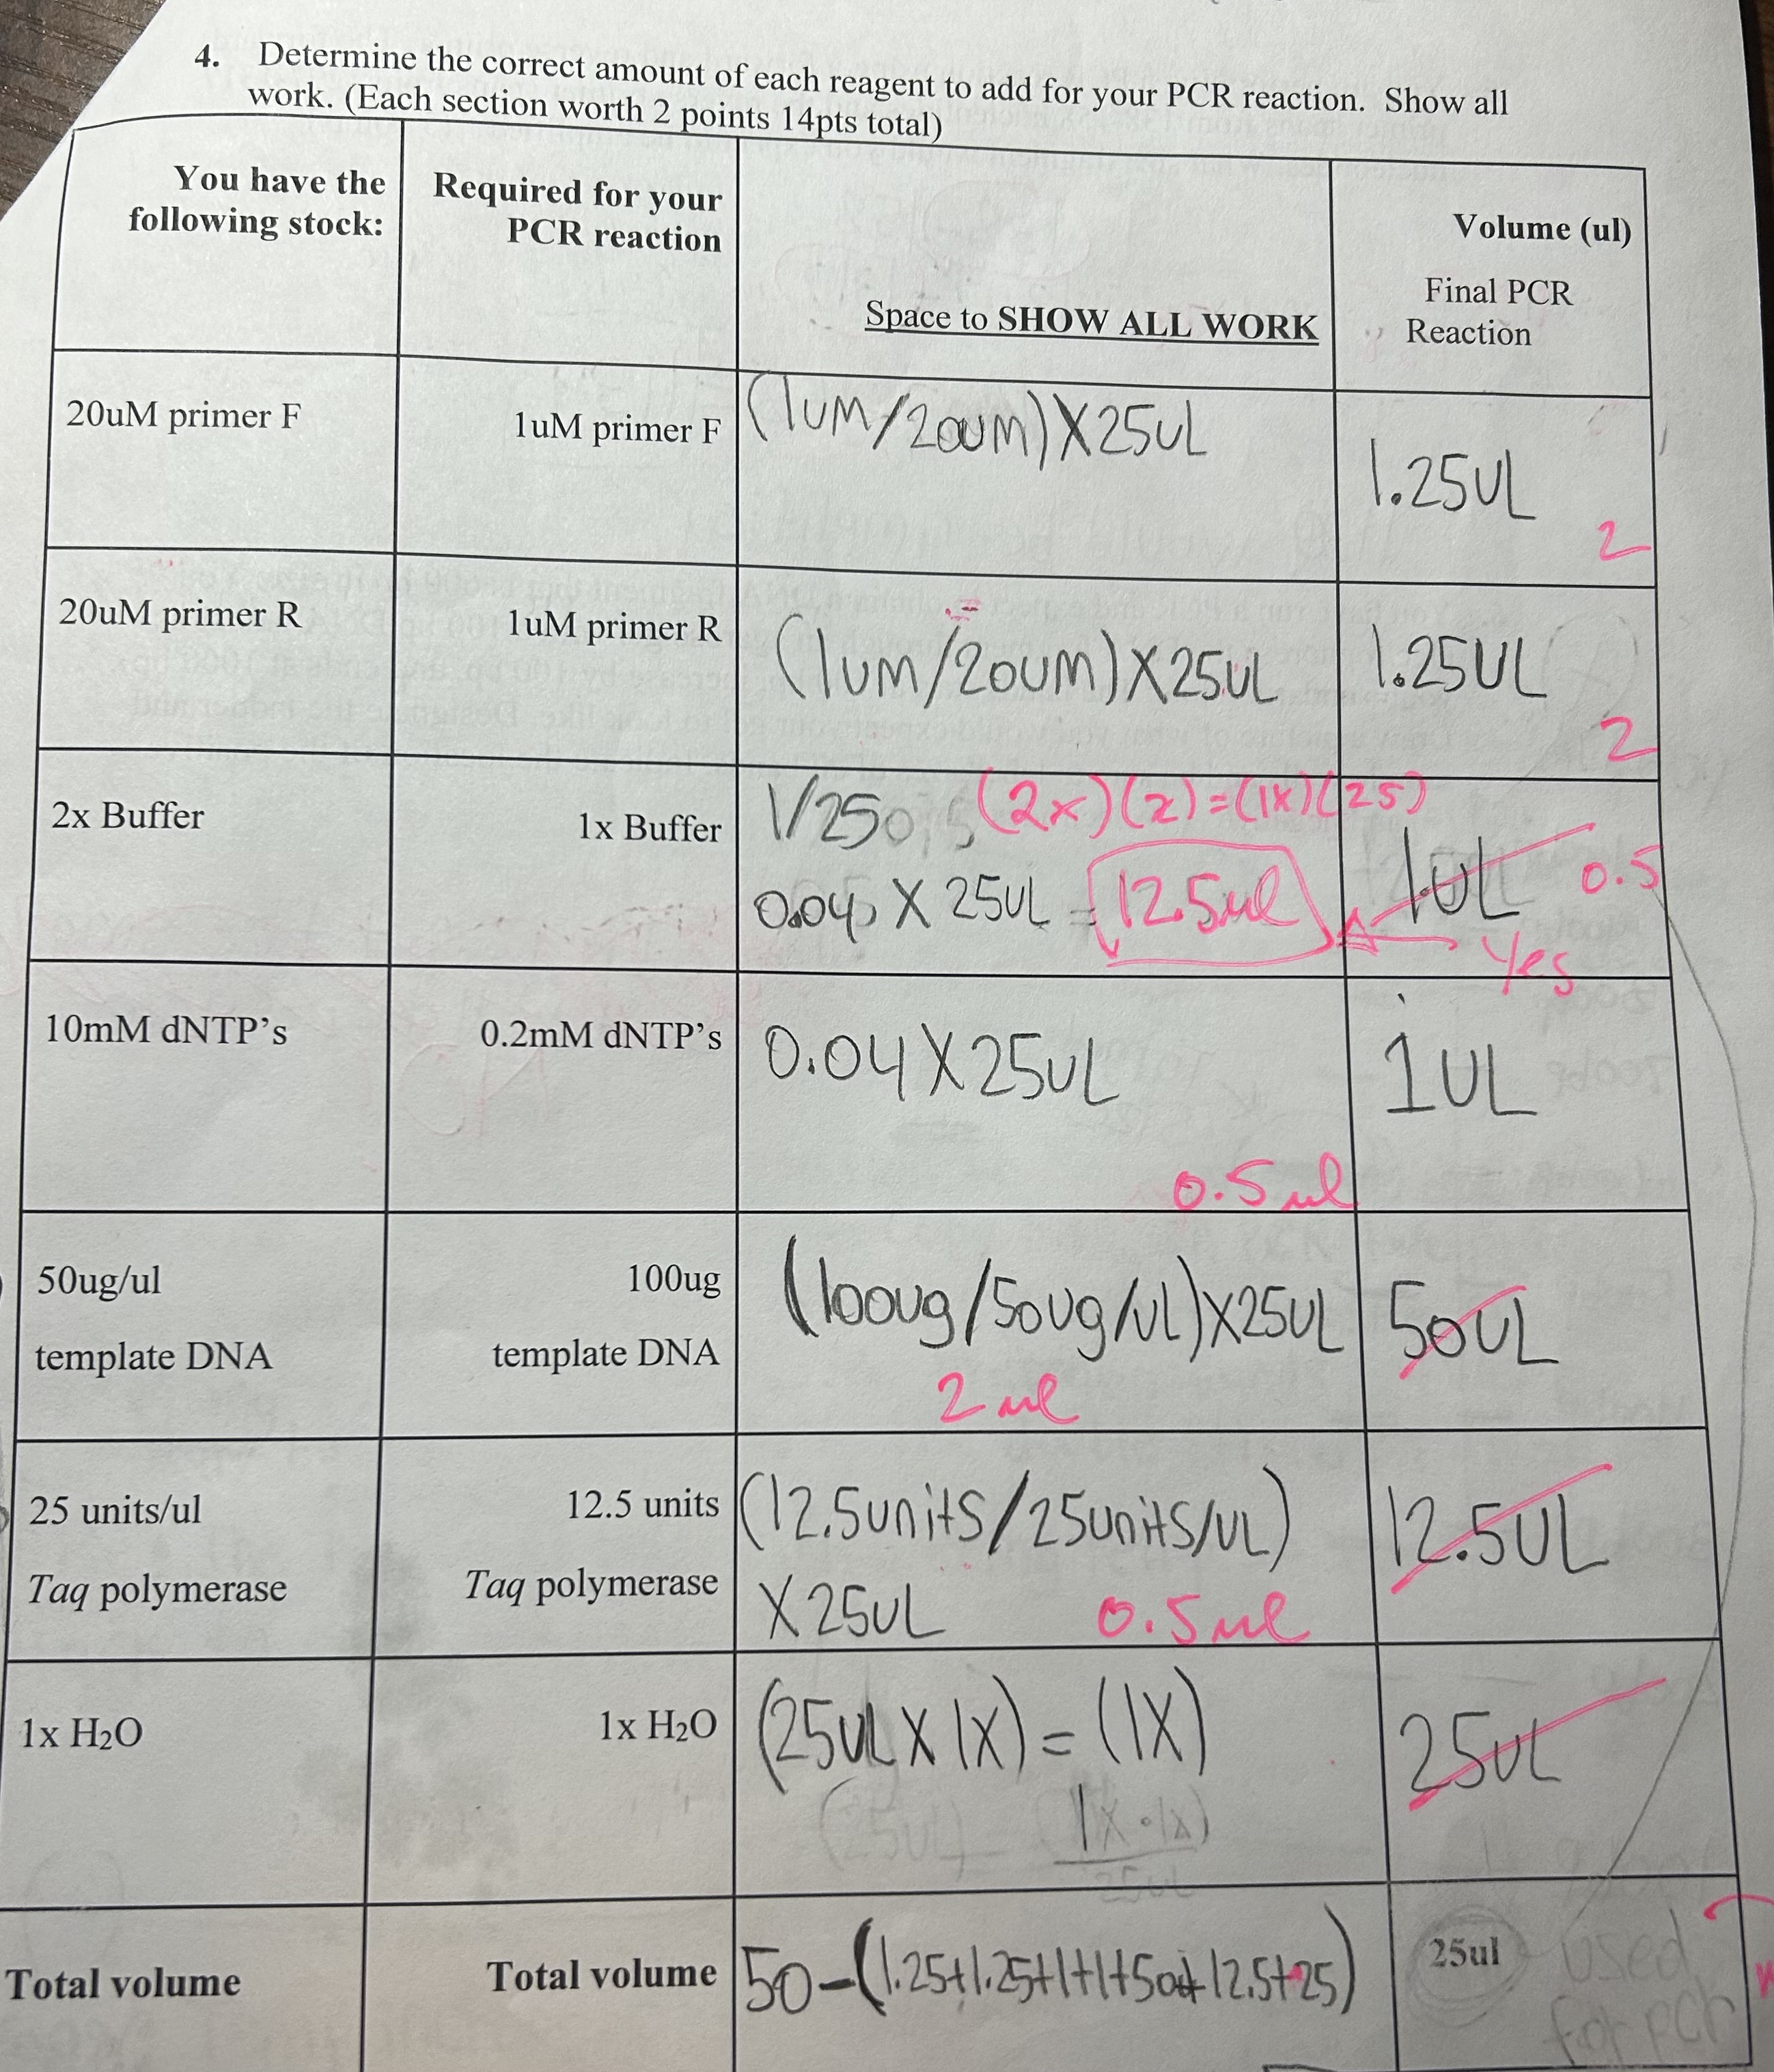 4. Determine the correct amount of each reagent to add for your PCR reaction. Show all
work. (Each section worth 2 points 14pts total)
You have the
following stock:
Required for your
PCR reaction
Space to SHOW ALL WORK
Volume (ul)
Final PCR
Reaction
20uM primer F
1uM primer F
(1uM/20uM)X25uL
1.25UL
2
20uM primer R
1uM primer R
(1uM/20uM)X25uL
1.25UL
2
2x Buffer
1x Buffer
1/25
(2x)(x)=(1x)(25)
0.04 X 25UL =
12.5ul
1UL
0.5
Yes
10mM dNTP's
0.2mM dNTP's
0.04X25UL
1UL
0.5ul
50ug/ul
template DNA
100ug
template DNA
(100ug/50ug/uL)X25UL
2ul
50UL
25 units/ul
Taq polymerase
12.5 units
Taq polymerase
(12.5units/25units/UL)
X25UL
0.5ul
12.5UL
1x H₂O
1x H₂O
(25uLX1X)=(1X)
1X·1X)
25UL
Total volume
Total volume
50-(1.25+1.25+1+1+50+12.5+25)
25ul
used
for PCR